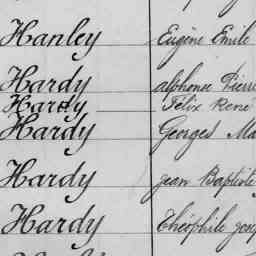 Hanley Eugène Emile
Hardy alphonse Pierre
Hardy Félix René
Hardy Georges Ma
Hardy jean Baptiste
Hardy Théophile jose